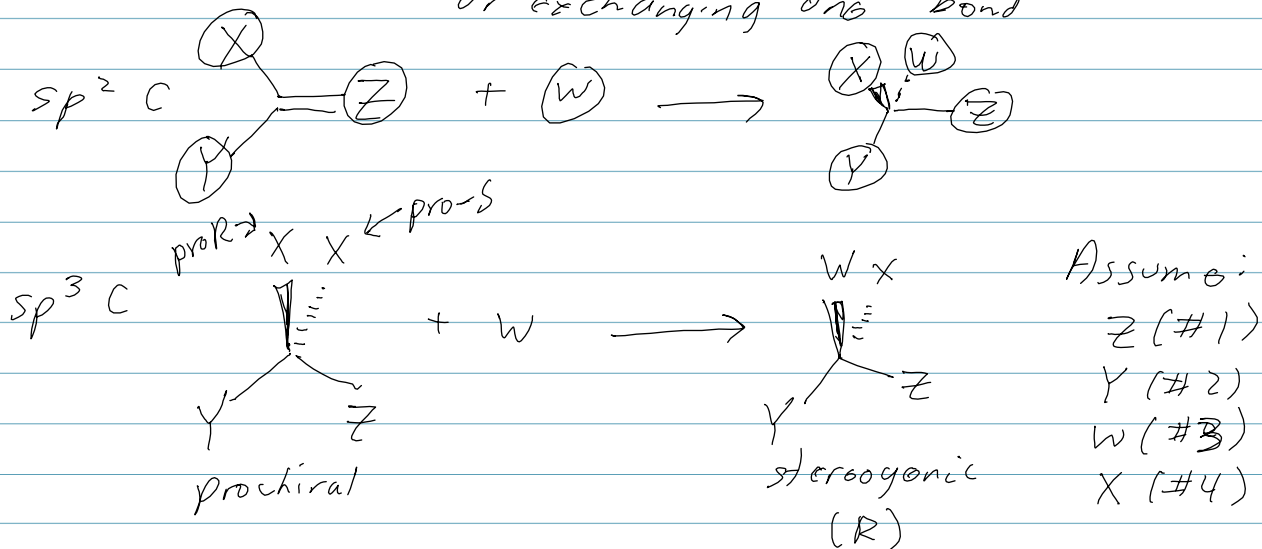 or exchanging one bond
sp² C X Y Z + W → X W Z Y
proR→ X X ←pro-S
sp³ C Y Z + W → W X Y Z
prochiral
stereogonic
(R)
Assume:
Z (#1)
Y (#2)
W (#3)
X (#4)